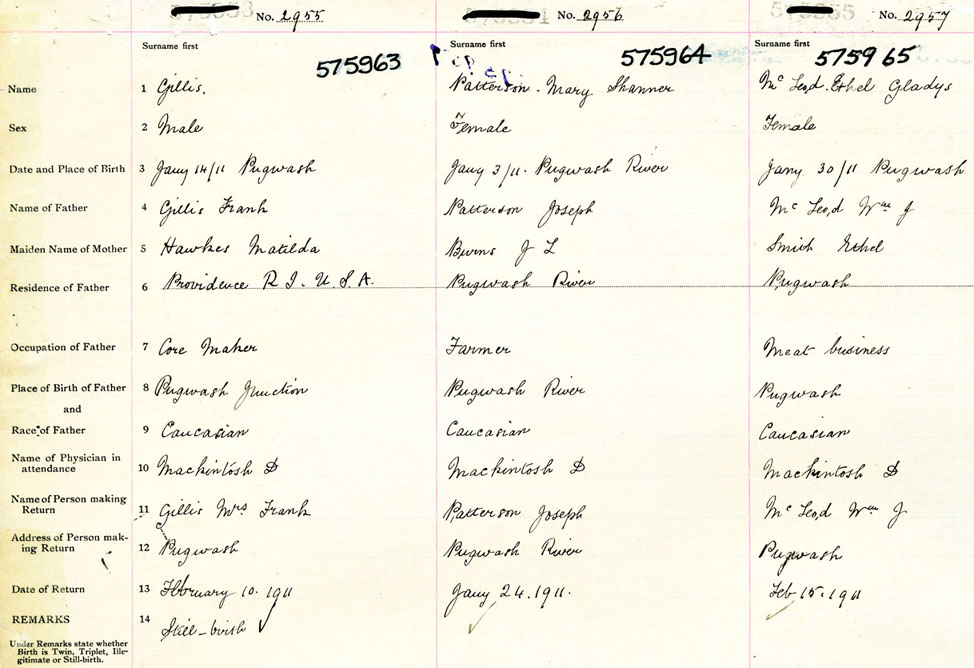 No. 2955 No. 2956 No. 2957
Surname first Surname first Surname first
575963 575964 575965
Name 1 Gillis. Patterson - Mary Shanner McLeod. Ethel Gladys
Sex 2 Male Female Female
Date and Place of Birth 3 Jany 14/11 Pugwash Jany 3/11. Pugwash River Jany 30/11 Pugwash
Name of Father 4 Gillis Frank Patterson Joseph McLeod Wm J
Maiden Name of Mother 5 Hawkes Matilda Burns J L Smith Ethel
Residence of Father 6 Providence R I. U.S.A. Pugwash River Pugwash
Occupation of Father 7 Core Maker Farmer Meat business
Place of Birth of Father 8 Pugwash Junction Pugwash River Pugwash
and
Race of Father 9 Caucasian Caucasian Caucasian
Name of Physician in
attendance 10 Mackintosh D Mackintosh D Mackintosh D
Name of Person making
Return 11 Gillis Mrs Frank Patterson Joseph McLeod Wm J
Address of Person mak-
ing Return 12 Pugwash Pugwash River Pugwash
Date of Return 13 February 10. 1911 Jany 24. 1911. Feb 15. 1911
REMARKS 14 Still-birth
Under Remarks state whether
Birth is Twin, Triplet, Ille-
gitimate or Still-birth.